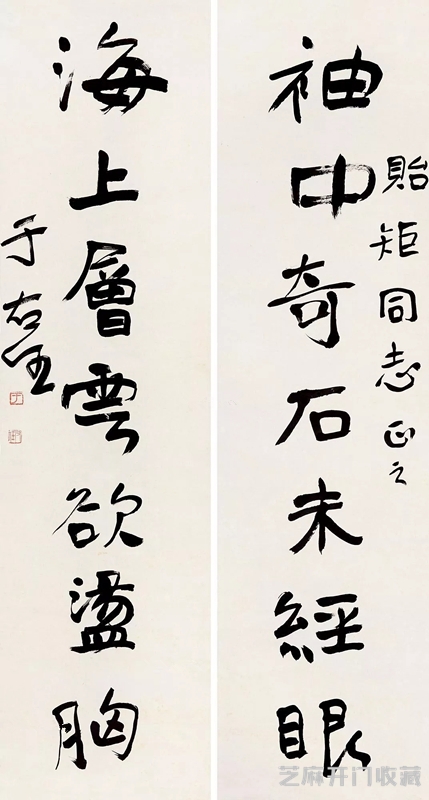 貽矩同志正之
袖中奇石未經眼
海上層雲欲盪胸
于右任
芝麻开门收藏